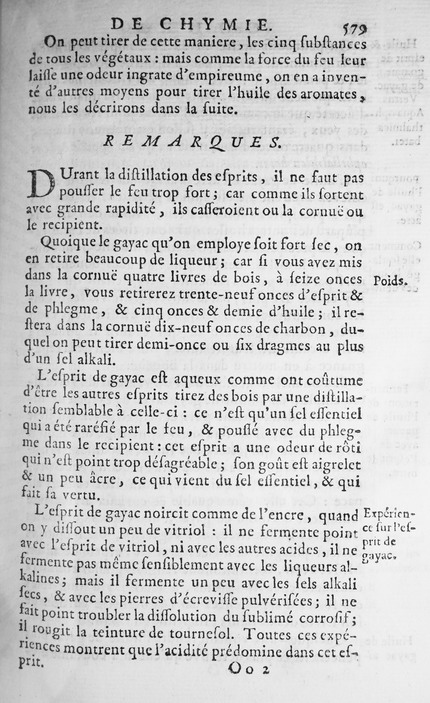 DE CHYMIE. 579
On peut tirer de cette maniere, les cinq ſubſtances
de tous les végétaux : mais comme la force du feu leur
laiſſe une odeur ingrate d'empireume, on en a inven-
té d'autres moyens pour tirer l'huile des aromates,
nous les décrirons dans la ſuite.
REMARQUES.
DUrant la diſtillation des eſprits, il ne faut pas
pouſſer le feu trop fort ; car comme ils ſortent
avec grande rapidité, ils caſſeroient ou la cornuë ou
le recipient.
Quoique le gayac qu'on employe ſoit fort ſec, on
en retire beaucoup de liqueur ; car ſi vous avez mis
dans la cornuë quatre livres de bois, à ſeize onces
Poids.
la livre, vous retirerez trente-neuf onces d'eſprit &
de phlegme, & cinq onces & demie d'huile ; il re-
ſtera dans la cornuë dix-neuf onces de charbon, du-
quel on peut tirer demi-once ou ſix dragmes au plus
d'un ſel alkali.
L'eſprit de gayac eſt aqueux comme ont coûtume
d'être les autres eſprits tirez des bois par une diſtilla-
tion ſemblable à celle-ci : ce n'eſt qu'un ſel eſſentiel
qui a été raréfié par le feu, & pouſſé avec du phleg-
me dans le recipient : cet eſprit a une odeur de rôti
qui n'eſt point trop déſagréable ; ſon goût eſt aigrelet
& un peu âcre, ce qui vient du ſel eſſentiel, & qui
fait ſa vertu.
L'eſprit de gayac noircit comme de l'encre, quand
on y diſſout un peu de vitriol : il ne fermente point
avec l'eſprit de vitriol, ni avec les autres acides, il ne
fermente pas même ſenſiblement avec les liqueurs al-
kalines ; mais il fermente un peu avec les ſels alkali
ſecs, & avec les pierres d'écreviſſe pulvériſées ; il ne
fait point troubler la diſſolution du ſublimé corroſif ;
il rougit la teinture de tourneſol. Toutes ces expé-
riences montrent que l'acidité prédomine dans cet eſ-
prit.
Expérien-
ce ſur l'eſ-
prit de
gayac.
Oo 2